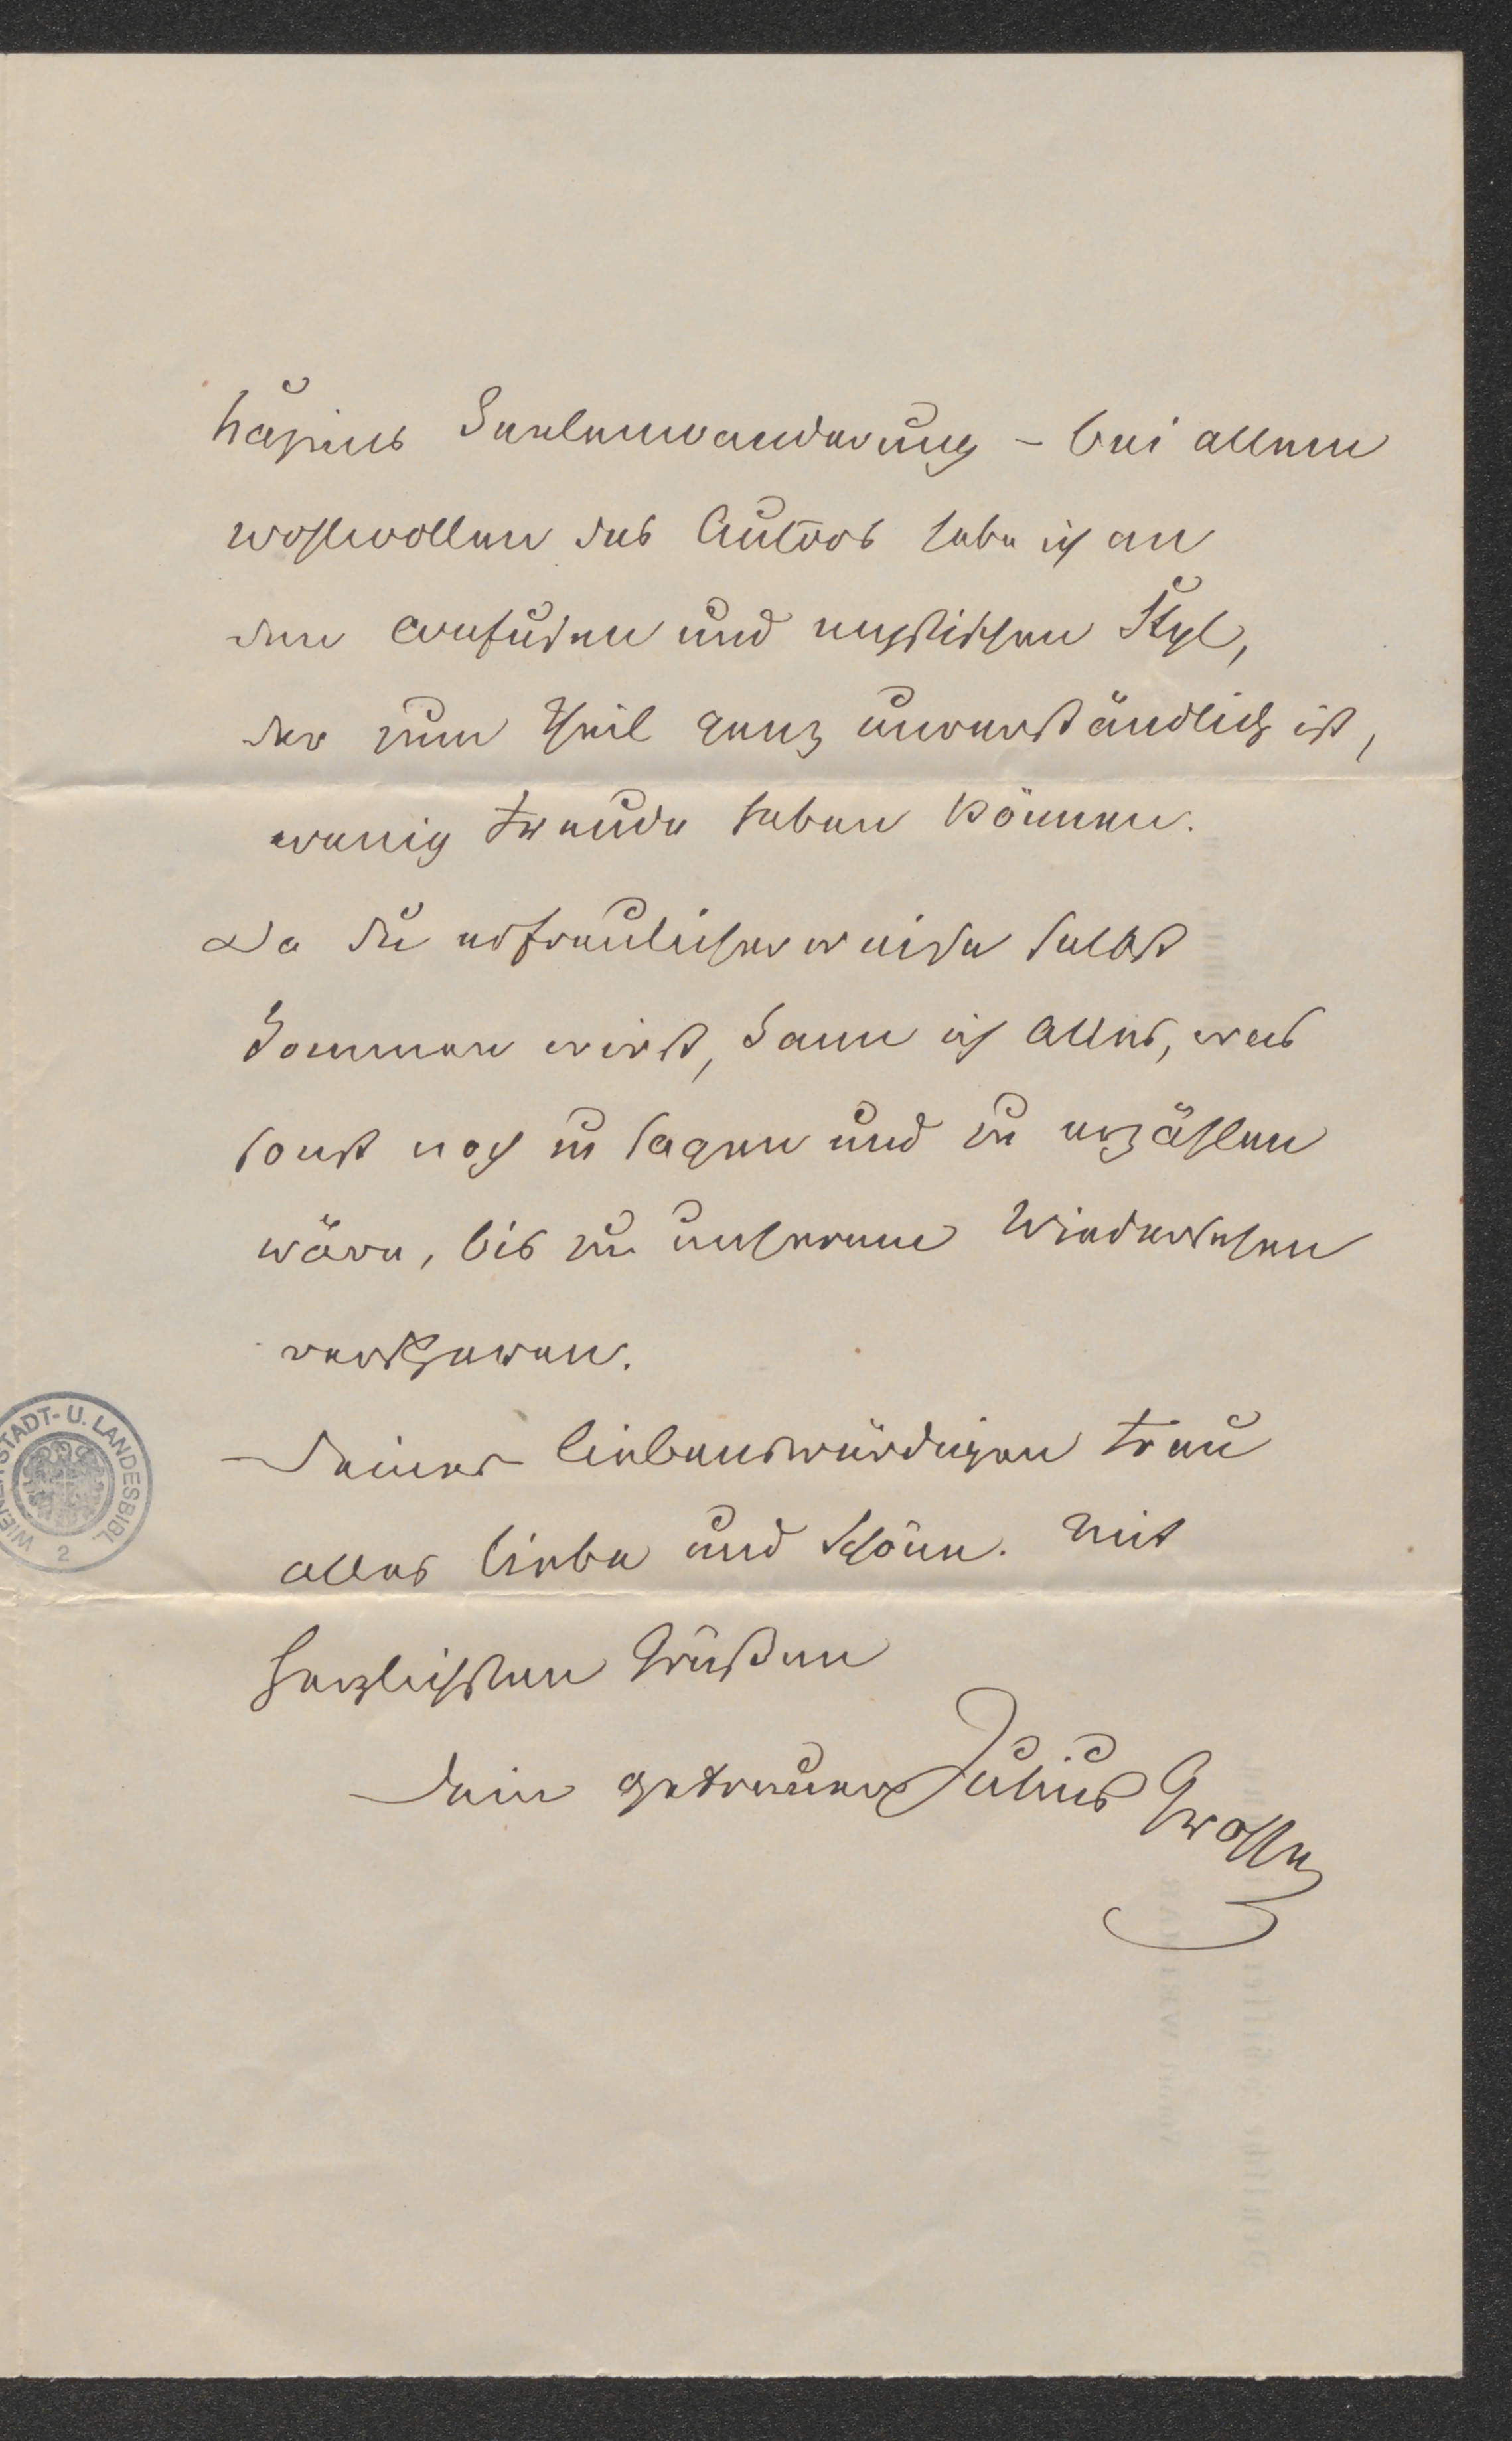 Seelenwanderung – bei allem
Wohlwollen des Autors habe ich an
dem confusen und mystischen Styl,
der zum Theil ganz unverständlich ist,
wenig Freude haben können.
Da Du erfreulicherweise selbst
kommen wirst, kann ich Alles, was
sonst noch zu sagen und zu erzählen
wäre, bis zu unserem Wiedersehen
versparen.
Deiner liebenswürdigen Frau
alles Liebe und Schöne. Mit
herzlichsten Grüßen
Dein getreuer Julius Grosse
WIENER STADT- U. LANDESBIBL.
2